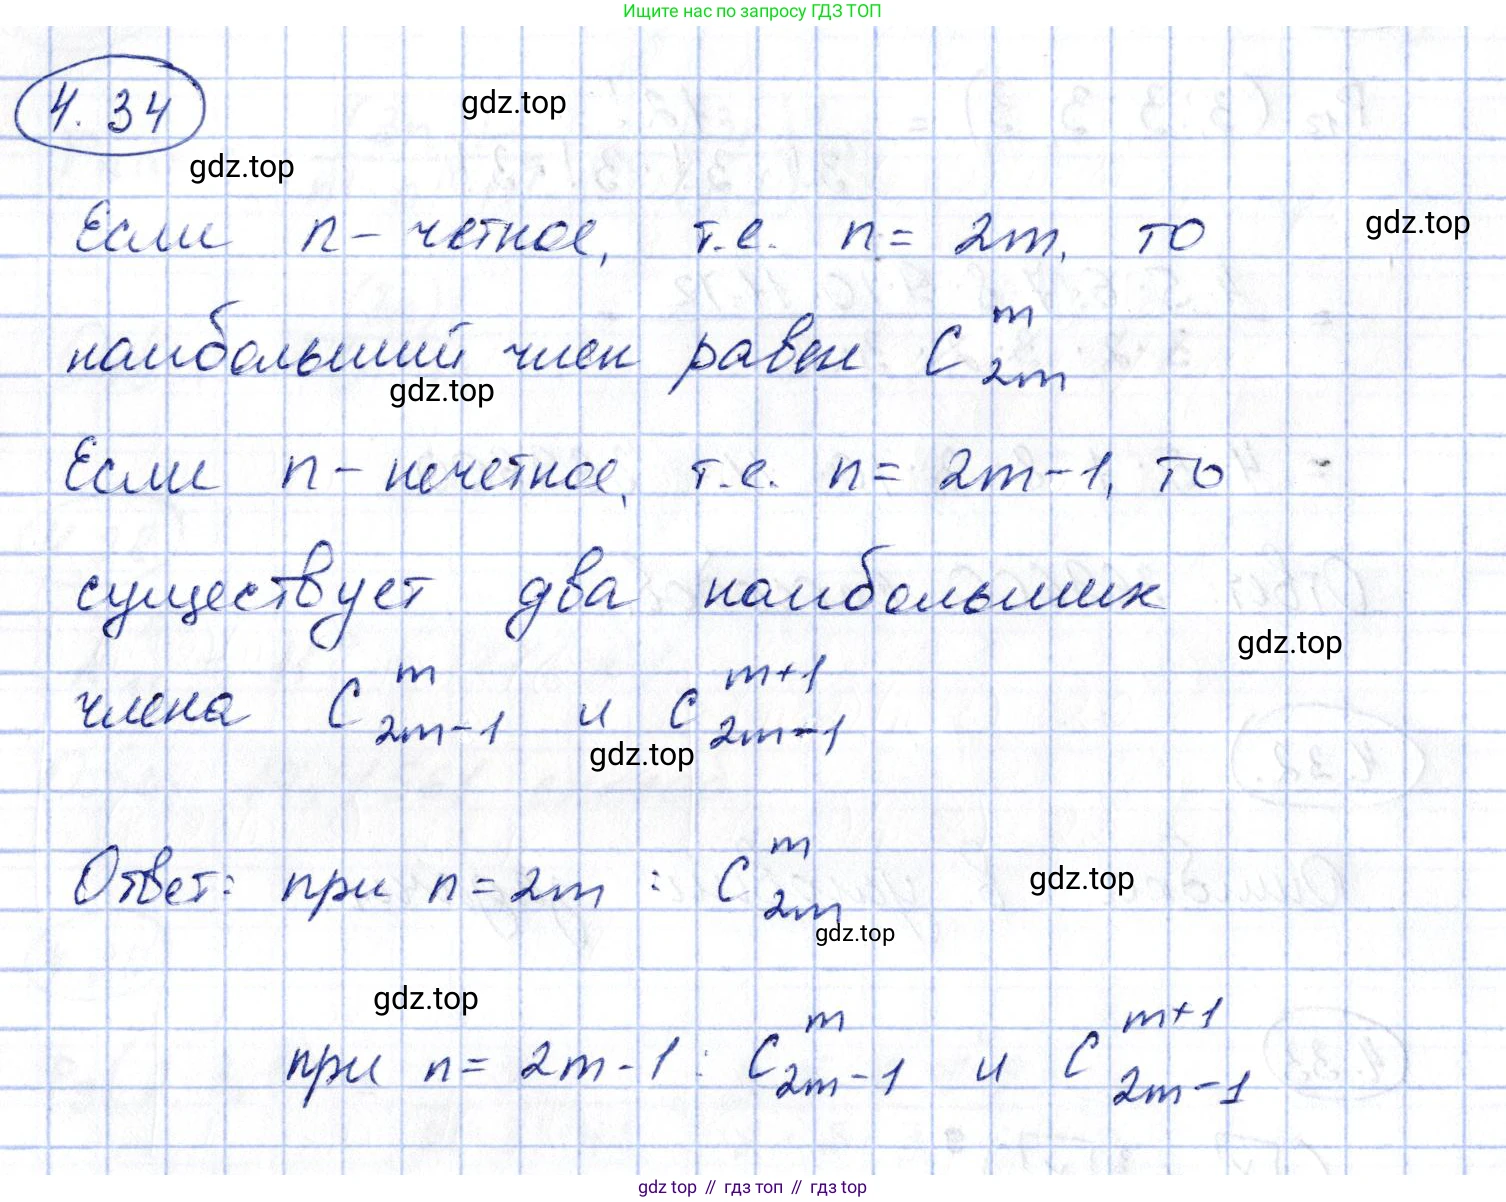 Ищите нас по запросу ГДЗ ТОП
4.34
gdz.top
gdz.top
Если n - четное, т.е. n = 2m, то
gdz.top
наибольший член равен C^m_2m
gdz.top
Если n - нечетное, т.е. n = 2m-1, то
существует два наибольших
gdz.top
члена C^m_2m-1 и C^m+1_2m-1
gdz.top
Ответ: при n = 2m : C^m_2m
gdz.top
gdz.top
gdz.top
при n = 2m-1 : C^m_2m-1 и C^m+1_2m-1
gdz top // гдз топ // гдз top